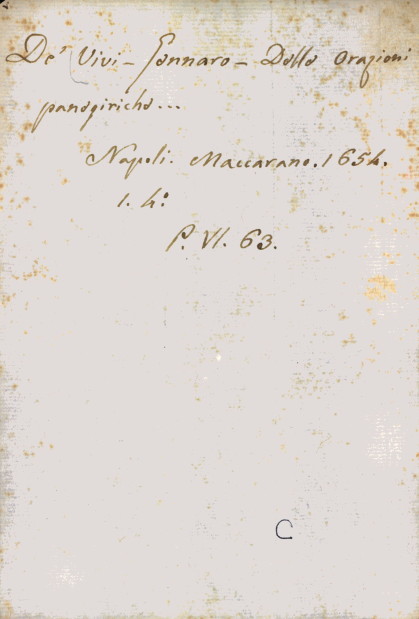 De' Vivi - Gennaro - Delle orazioni
panegiriche...
Napoli. Maccarano. 1654.
1. 4.º
P. VI. 63.
C